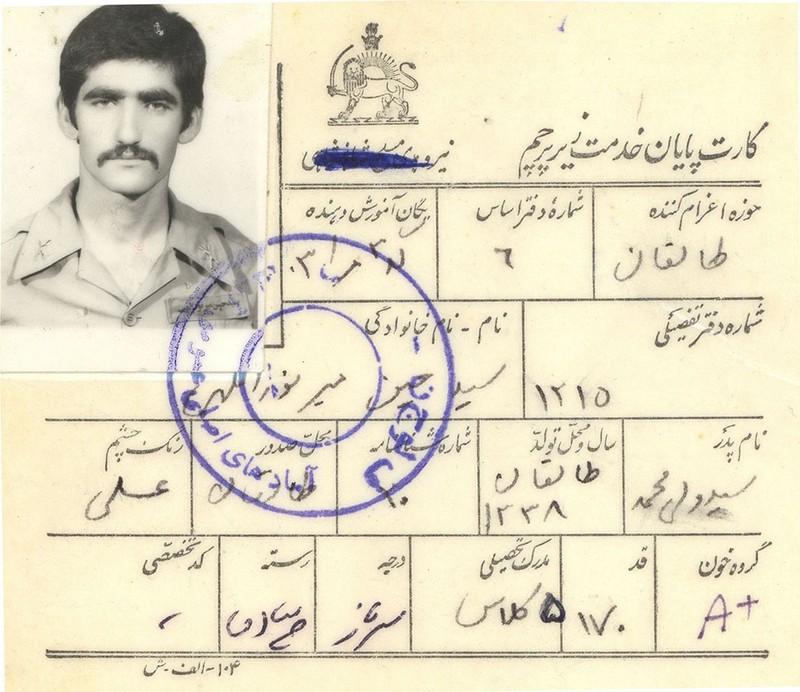 کارت پایان خدمت زیر پرچم
حوزه اعزام کننده
شمارهٔ دفتر اساس
یگان آموزش دهنده
طالقان
۶
شماره دفتر تفصیلی
نام - نام خانوادگی
۱۲۱۵
سید حسین میر
نام پدر
سال و محل تولد
شماره شناسنامه
محل صدور
رنگ چشم
سیدولی محمد
طالقان
۱۳۳۸
۱۰
طالقان
عسلی
گروه خون
قد
مدرک تحصیلی
درجه
رسته
کد تخصصی
A+
۱۷۰
۵ کلاس
سرباز
۱۰۴-الف-ش